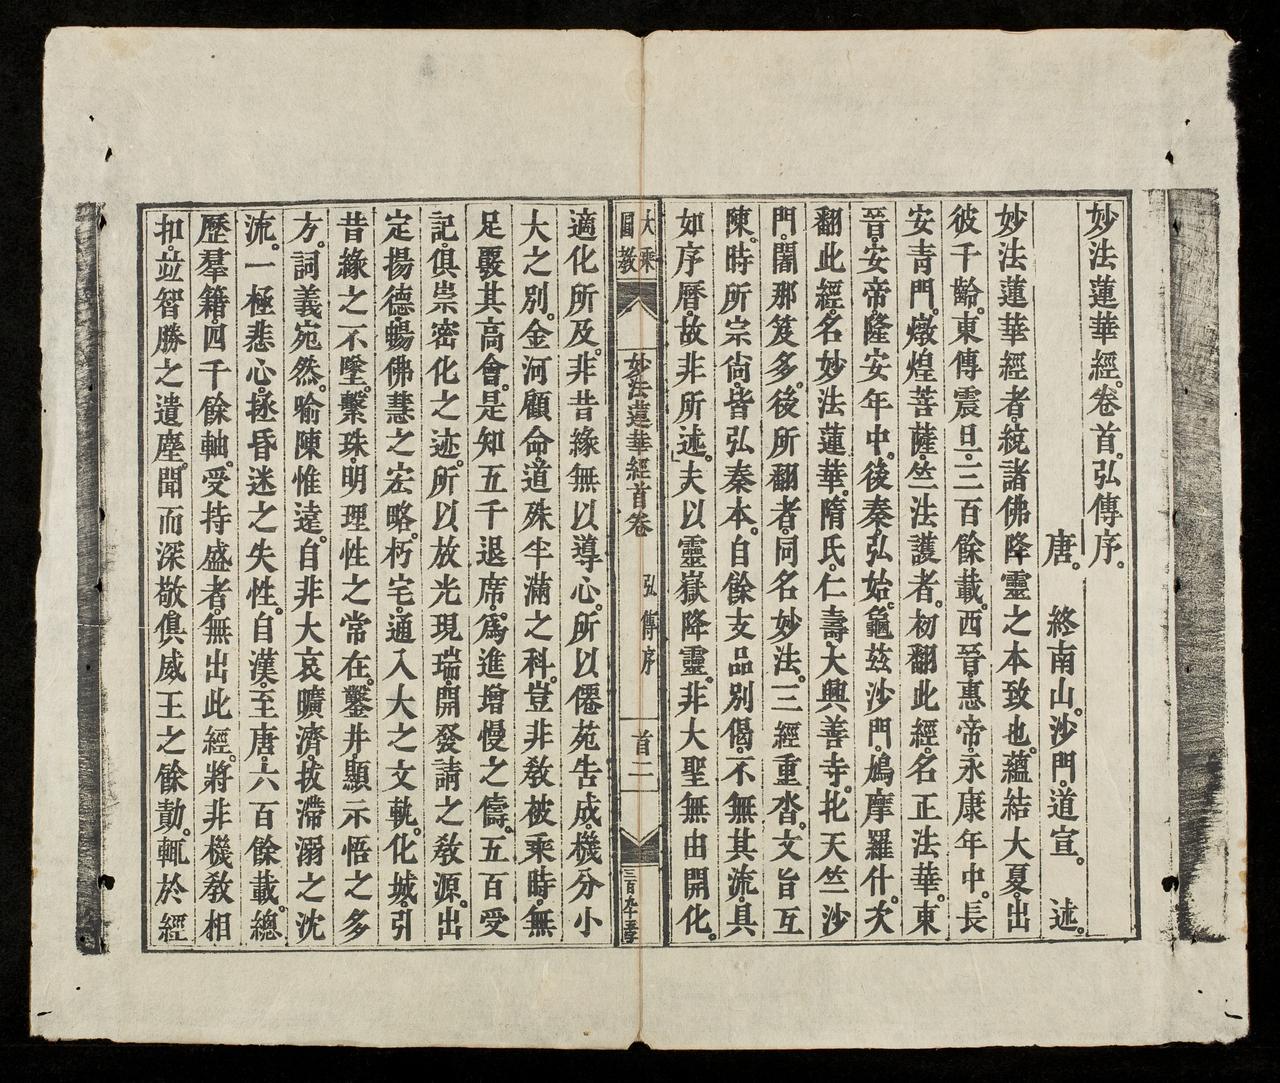 妙法蓮華經。卷首。弘傳序。
唐。終南山。沙門。道宣。述。
妙法蓮華經者。統諸佛降靈之本致也。蘊結大夏。出
彼千齡。東傳震旦。三百餘載。西晉。惠帝。永康年中。長
安青門。燉煌菩薩。竺法護者。初翻此經。名正法華。東
晉。安帝。隆安年中。後秦。弘始。龜茲沙門。鳩摩羅什。次
翻此經。名妙法蓮華。隋氏。仁壽。大興善寺。北天竺沙
門。闍那笈多。後所翻者。同名妙法。三經重沓。文旨互
陳。時所宗尙。皆弘秦本。自餘支品別偈。不無其流。具
如序曆。故非所述。夫以靈嶽降靈。非大聖無由開化。
大乘
圓教
妙法蓮華經首卷
弘傳序
首二
三百九十五字
適化所及。非昔緣無以導心。所以僊苑告成。機分小
大之別。金河顧命。道殊半滿之科。豈非敎被乘時。無
足覈其高會。是知五千退席。爲進增慢之儔。五百受
記。俱崇密化之迹。所以放光現瑞。開發請之敎源。出
定揚德。暢佛慧之宏略。朽宅。通入大之文軌。化城。引
昔緣之不墜。繫珠。明理性之常在。鑿井。顯示悟之多
方。詞義宛然。喻陳惟遠。自非大哀曠濟。拔滯溺之沈
流。一極悲心。拯昏迷之失性。自漢。至唐。六百餘載。總
歷羣籍。四千餘軸。受持盛者。無出此經。將非機敎相
扣。竝智勝之遺塵。聞而深敬。俱威王之餘勣。輒於經